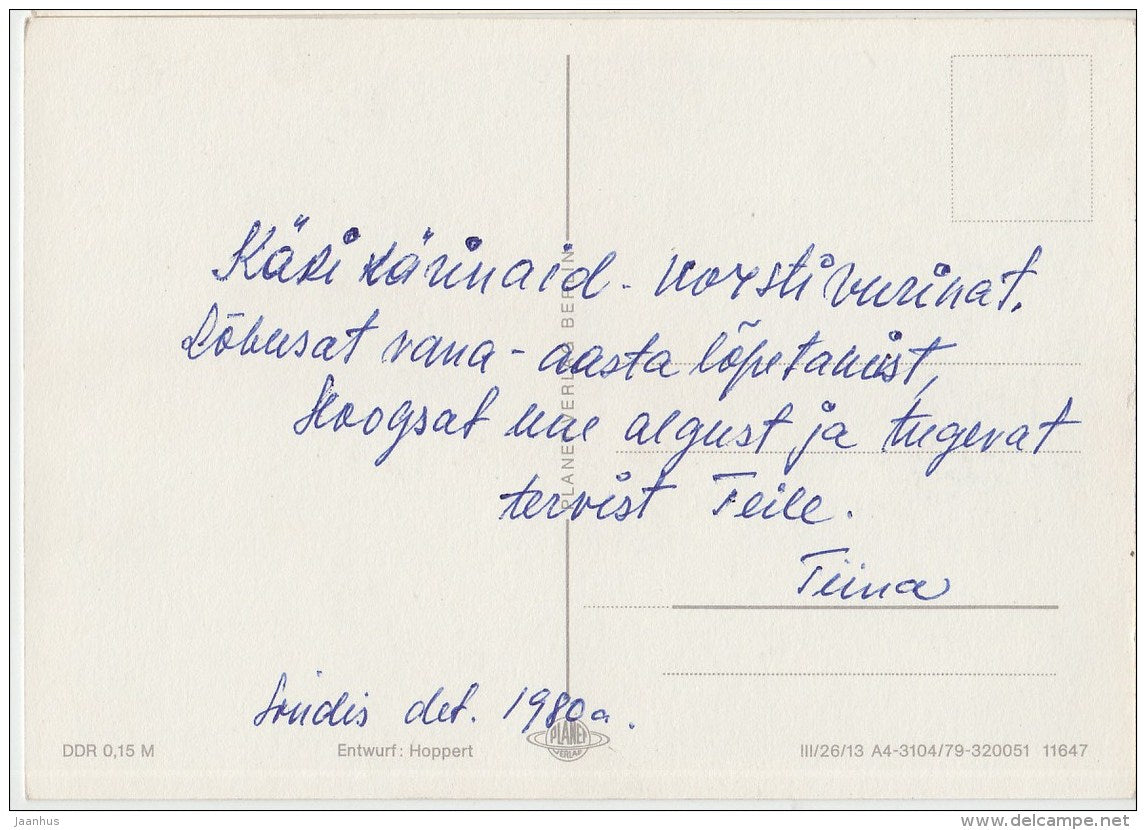 Käki kärinaid - vorsti vurinat.
Lõbusat vana-aasta lõpetamist,
Hoogsat uue algust ja tugevat
tervist Teile.
Tiina
Sindis det. 1980 a.
PLANET-VERLAG BERLIN
PLANET
VERLAG
DDR 0,15 M
Entwurf: Hoppert
III/26/13 A4-3104/79-320051 11647
Jaanhus
www.delcampe.net